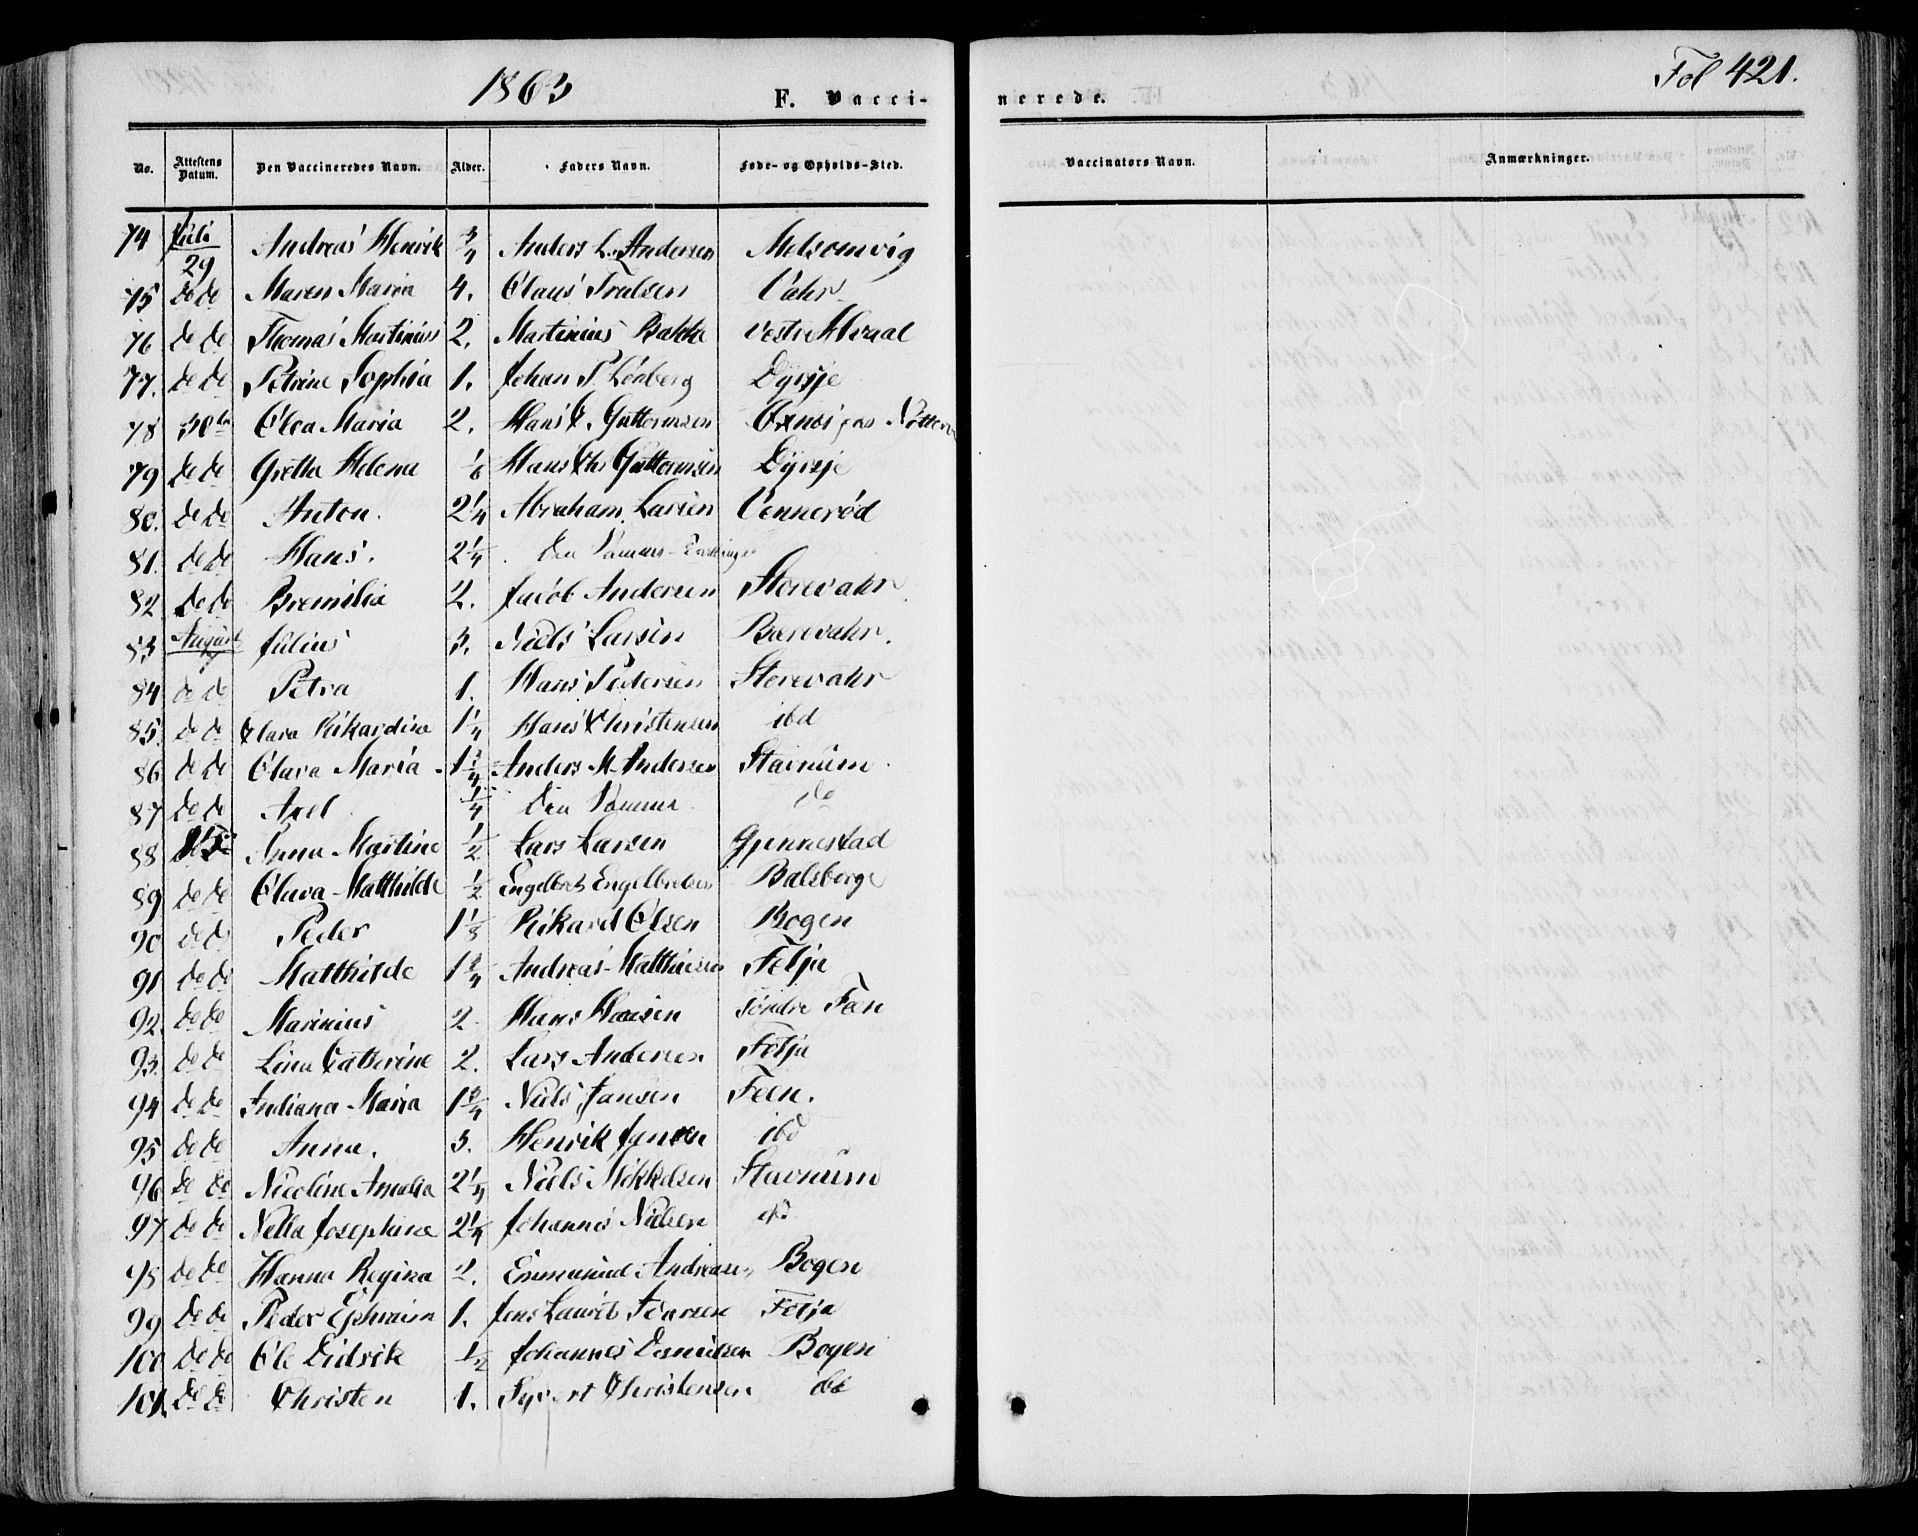 1863 F. Vacci-
nerede. Fol 421.
No. Attestens Datum. Den Vaccineredes Navn. Alder. Faders Navn. Føde- og Opholds-Sted. Vaccinators Navn. Anmærkninger.
74 Juli 29 Andreas Henrik 3/4 Anders L. Andersen Melsomvig
75 do do Maren Maria 4. Claus Trulsen Vahr
76 do do Thomas Martinius 2. Martinius Bakke Vestre
77. do do Petrine Sophia 1. Johan P. Lönberg Dyrsje
78 30te Olea Maria 2. Hans C. Guttormsen
79 do do Grethe Helena 1/6 Hans Chr Guttormsen Dyrsje
80. do do Anton. 2 1/4 Abraham Larsen Vennerød
81. do do Hans. 2 1/4 Den Samme
82 do do Bremilia 2. Jacob Andersen Storevahr
83 August Julius 3. Niels Larsen Bærevahr.
84 do do Petra 1. Hans Pedersen Storevahr
85. do do Clara Rikardine 1 1/4 Hans Christensen ibd
86 do do Clara Maria 1 3/4 Anders M. Andersen Stavnum
87 do do Axel 1/4 Den Samme do
88 Anna Martine 1/2 Lars Larsen Gjennestad
89 do do Clara Matthilde 1/2 Engelbret Engelbretsen Balsberge
90 do do Peder 1 1/3 Rikard Olsen Bogen
91 do do Matthilde 1 3/4 Andreas Matthiesen Følja
92. do do Marinius 2 Hans Hansen Søndre Føen
93. do do Lina Catherine 2. Lars Andersen Følja
94 do do Indiana Maria 1 3/4 Niels Jansen Feen.
95 do do Anna. 3. Henrik Jansen ibd
96 do do Nicoline Amalia 2 1/4 Niels Mikkelsen Stavnum
97 do do Nella Josephine 2 1/4 Johannes Nielsen do
98 do do Hanna Regina 2. Emmanuel Andreasen Bogen
99 do do Peder Ephraim 1. Jens Laurits Følja
100 do do Ole Didrik 1/2 Johannes Bogen
101. do do Christen 1. Syvert Christensen ibd